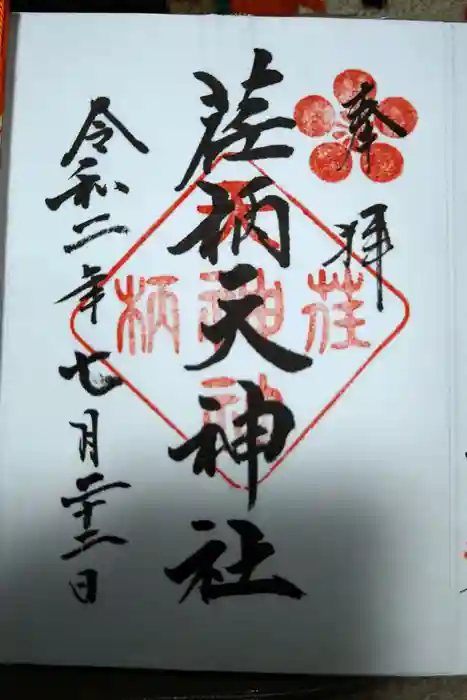 奉拝
荏柄天神社
令和二年七月二十二日
荏
柄
天
神
社